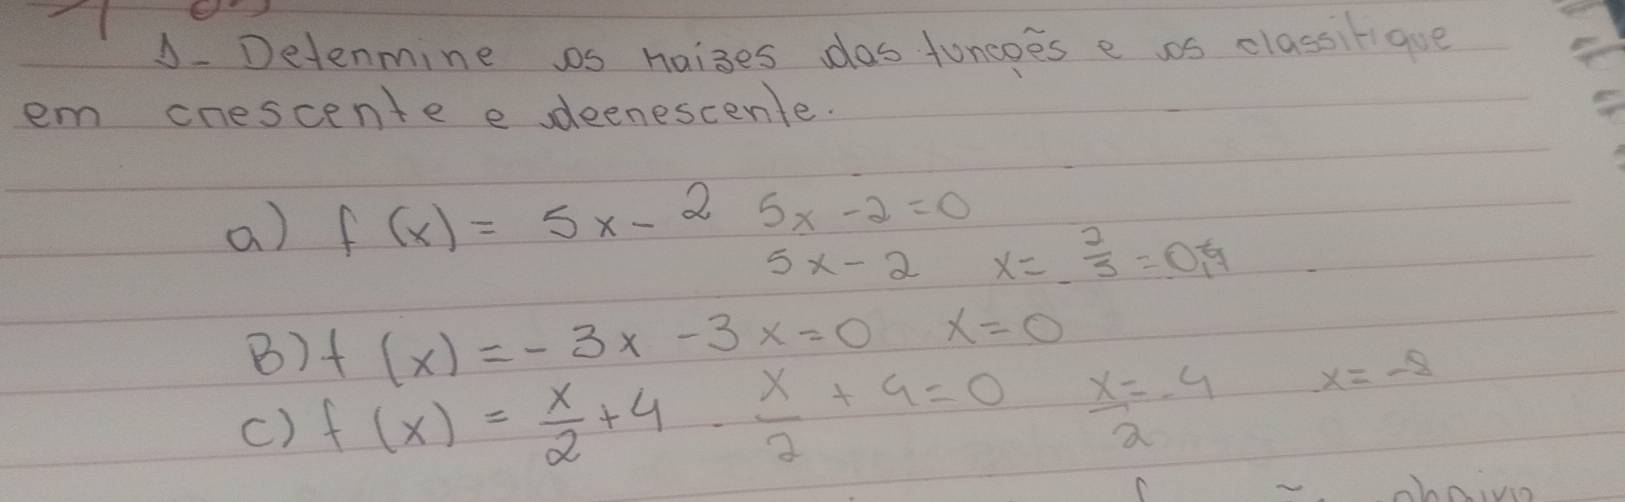 1- Determine os raizes das funcoẽs e os classifique
em crescente e decrescente.
a) f(x) = 5x - 2 5x - 2 = 0
5x - 2 x = 2/5 = 0,4
B) f(x) = - 3x - 3x = 0 x = 0
c) f(x) = x/2 + 4 x/2 + 4 = 0 x/2 = -4 x = -8